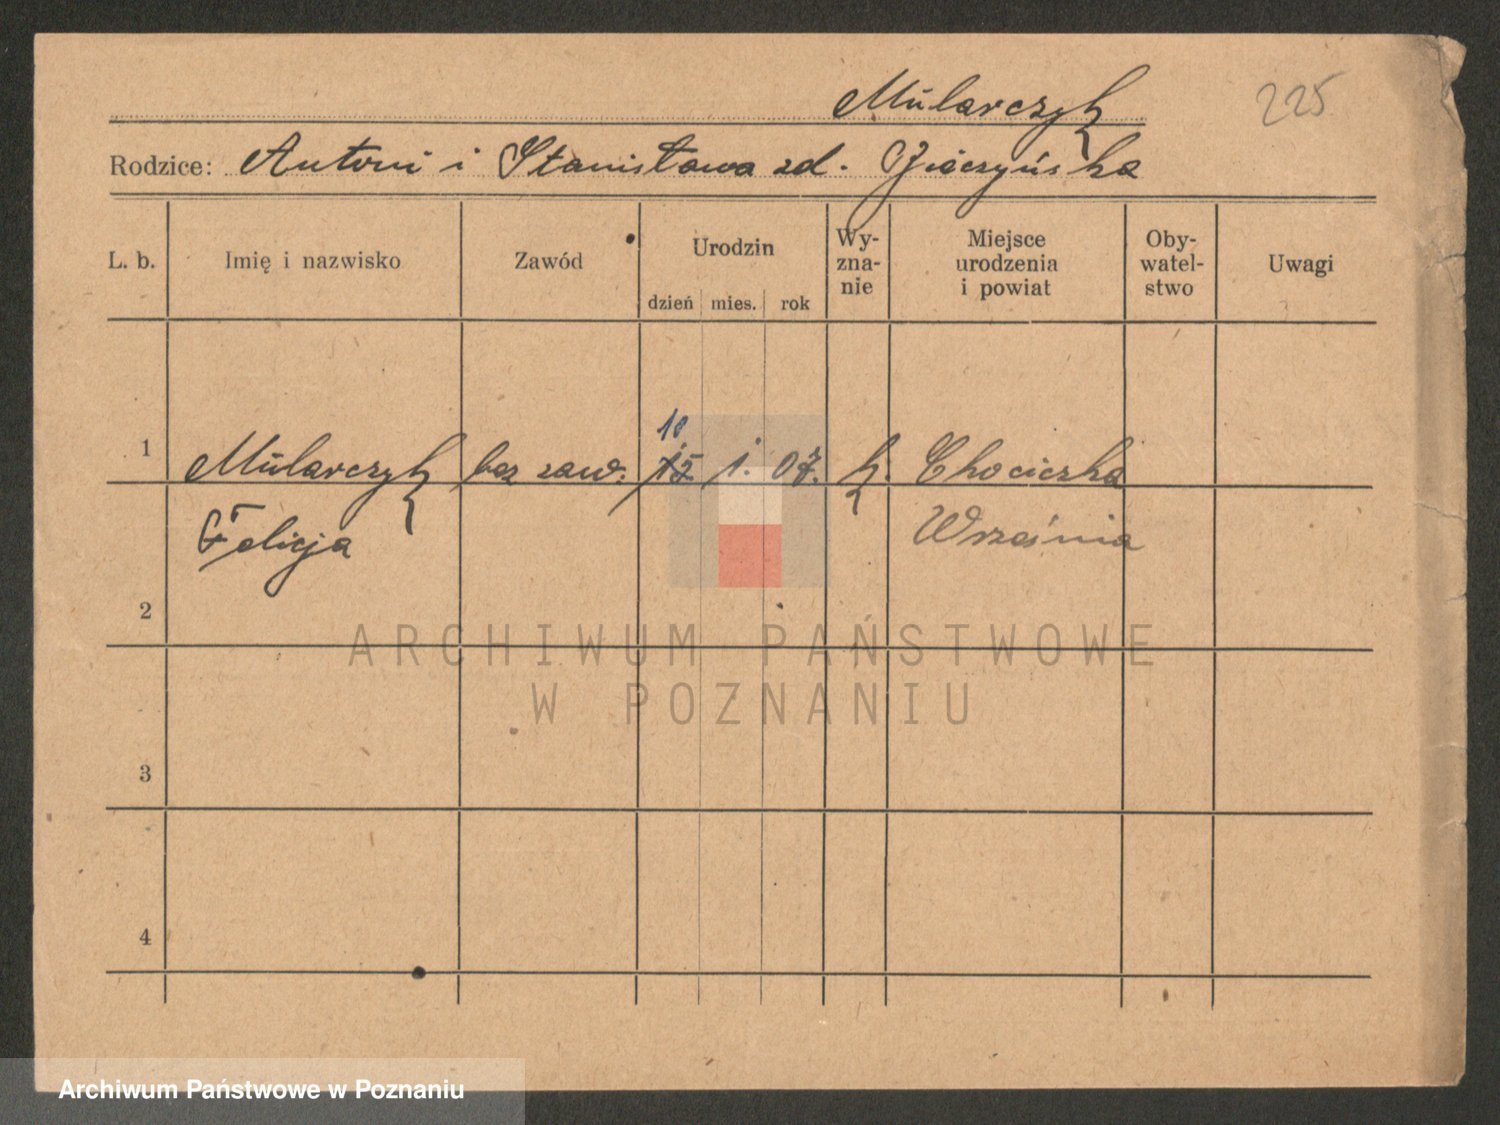 Mularczyk
225
Rodzice: Antoni i Stanisława zd.
L. b.
Imię i nazwisko
Zawód
Urodzin
dzień mies. rok
Wy-
zna-
nie
Miejsce
urodzenia
i powiat
Oby-
watel-
stwo
Uwagi
10
1 Mularczyk bez zaw. 15 1. 07. k. Chociczka
Felicja Września
2
ARCHIWUM PAŃSTWOWE
W POZNANIU
3
4
Archiwum Państwowe w Poznaniu